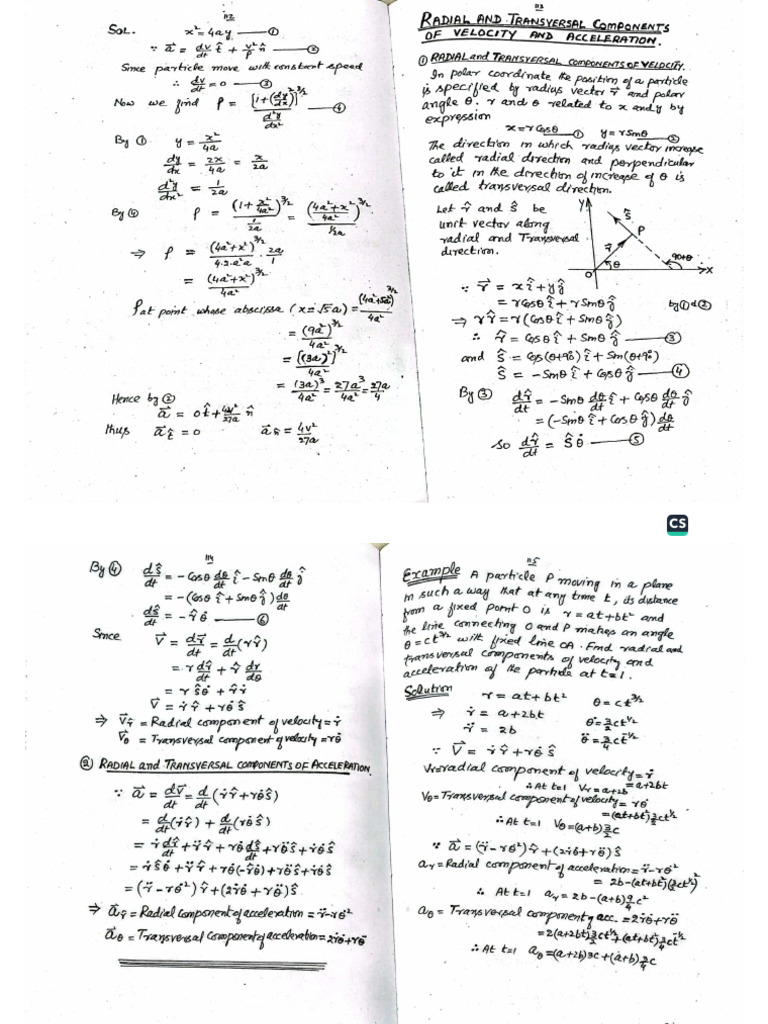 112
SOL. x² = 4ay —①
∵ a⃗ = dv/dt t̂ + v²/ρ n̂ —②
Since particle move with constant speed
∴ dv/dt = 0 —③
Now we find ρ = [1+(dy/dx)²]^3/2 / d²y/dx² —④
By ① y = x²/4a
dy/dx = 2x/4a = x/2a
d²y/dx² = 1/2a
By ④ ρ = (1+x²/4a²)^3/2 / 1/2a = ((4a²+x²)/4a²)^3/2 / 1/2a
⇒ ρ = (4a²+x²)^3/2 / 4.2.a²a · 2a/1
= (4a²+x²)^3/2 / 4a²
ρ at point whose abscissa (x=√5a) = (4a²+5a²)^3/2 / 4a²
= (9a²)^3/2 / 4a²
= [(3a)²]^3/2 / 4a²
= (3a)³/4a² = 27a³/4a² = 27a/4
Hence by ②
a⃗ = 0t̂ + 4v²/27a n̂
thus a⃗t̂ = 0 a⃗n̂ = 4v²/27a
113
RADIAL AND TRANSVERSAL COMPONENTS
OF VELOCITY AND ACCELERATION.
① RADIAL and TRANSVERSAL COMPONENTS OF VELOCITY.
In polar coordinate the position of a particle
is specified by radius vector r⃗ and polar
angle θ. r and θ related to x and y by
expression
x = rCosθ —① y = rSinθ —②
The direction in which radius vector increase
called radial direction and perpendicular
to it in the direction of increase of θ is
called transversal direction.
Let r̂ and ŝ be
unit vector along
radial and Transversal
direction.
Y
ŝ
P
r⃗
θ
90+θ
O
X
∵ r⃗ = xî + yĵ
= rCosθî + rSinθĵ by ① & ②
⇒ rr̂ = r(Cosθî + Sinθĵ)
∴ r̂ = Cosθî + Sinθĵ —③
and ŝ = Cos(θ+90)î + Sin(θ+90)ĵ
ŝ = -Sinθî + Cosθĵ —④
By ③ dr̂/dt = -Sinθ dθ/dt î + Cosθ dθ/dt ĵ
= (-Sinθî + Cosθĵ) dθ/dt
So dr̂/dt = ŝθ̇ —⑤
CS
114
By ④ dŝ/dt = -Cosθ dθ/dt î - Sinθ dθ/dt ĵ
= -(Cosθî + Sinθĵ) dθ/dt
dŝ/dt = -r̂θ̇ —⑥
Since V⃗ = dr⃗/dt = d/dt (rr̂)
= r dr̂/dt + r̂ dr/dθ
= rŝθ̇ + r̂ṙ
V⃗ = ṙr̂ + rθ̇ŝ
⇒ V⃗r̂ = Radial component of velocity = ṙ
V⃗θ = Transversal component of velocity = rθ̇
② RADIAL and TRANSVERSAL COMPONENTS OF ACCELERATION
∵ a⃗ = dV⃗/dt = d/dt (ṙr̂ + rθ̇ŝ)
= d/dt (ṙr̂) + d/dt (rθ̇ŝ)
= ṙ dr̂/dt + r̈r̂ + rθ̇ dŝ/dt + rθ̈ŝ + ṙθ̇ŝ
= ṙŝθ̇ + r̈r̂ + rθ̇(-r̂θ̇) + rθ̈ŝ + ṙθ̇ŝ
= (r̈ - rθ̇²)r̂ + (2ṙθ̇ + rθ̈)ŝ
⇒ a⃗r̂ = Radial component of acceleration = r̈ - rθ̇²
a⃗θ = Transversal component of acceleration = 2ṙθ̇ + rθ̈
115
Example A particle P moving in a plane
in such a way that at any time t, its distance
from a fixed point O is r = at + bt² and
the line connecting O and P makes an angle
θ = ct^3/2 with fixed line OA. Find radial and
transversal components of velocity and
acceleration of the particle at t=1.
Solution r = at + bt² θ = ct^3/2
⇒ ṙ = a + 2bt θ̇ = 3/2 ct^1/2
r̈ = 2b θ̈ = 3/4 ct^-1/2
∵ V⃗ = ṙr̂ + rθ̇ŝ
Vr = radial component of velocity = ṙ
= a+2bt
∴ At t=1 Vr = a+2b
Vθ = Transversal component of velocity = rθ̇
= (at+bt²) 3/2 ct^1/2
∴ At t=1 Vθ = (a+b) 3/2 c
∵ a⃗ = (r̈ - rθ̇²)r̂ + (2ṙθ̇ + rθ̈)ŝ
ar = Radial component of acceleration = r̈ - rθ̇²
= 2b - (at+bt²)(3/2 ct^1/2)²
∴ At t=1 ar = 2b - (a+b) 9/4 c²
aθ = Transversal component of acc. = 2ṙθ̇ + rθ̈
= 2(a+2bt) 3/2 ct^1/2 + (at+bt²) 3/4 ct^-1/2
∴ At t=1 aθ = (a+2b)3c + (a+b) 3/4 c